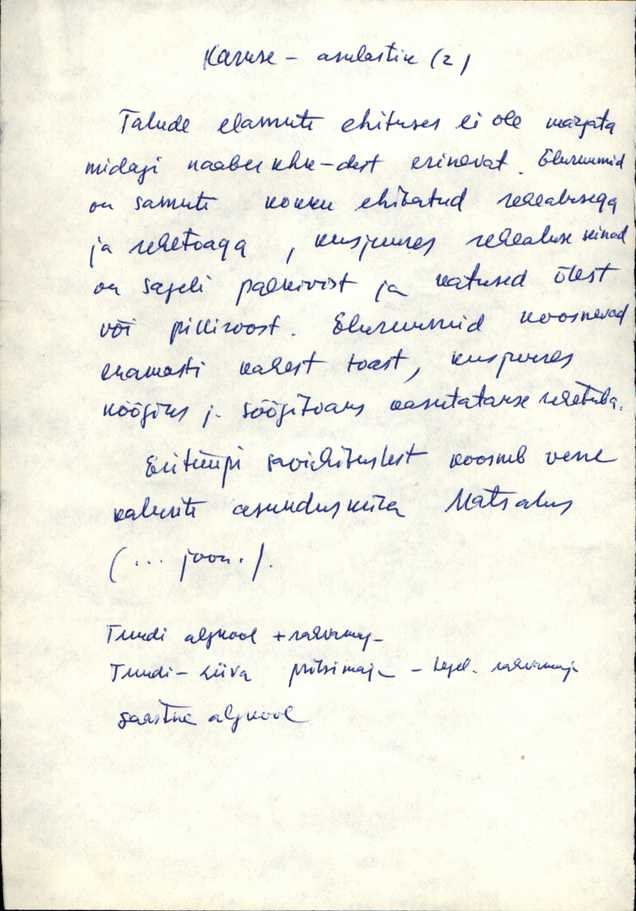 Karuse – asulastik (2)
Talude elamute ehituses ei ole märgata
midagi naaberkhk-dest erinevat. Eluruumid
on samuti kokku ehitatud rehealusega
ja rehetoaga, kusjuures rehealuse seinad
on sageli paekivist ja katused õlest
või pilliroost. Eluruumid koosnevad
enamasti kahest toast, kusjuures
köögiks j. söögitoaks kasutatakse rehetuba.
Eritüüpi saviehitustest koosneb vene
kalurite asundusküla Matsalus
(... joon.).
Tuudi algkool + rahvamaj-
Tuudi – Liiva pritsimaja – rahvamaja
Saastna algkool